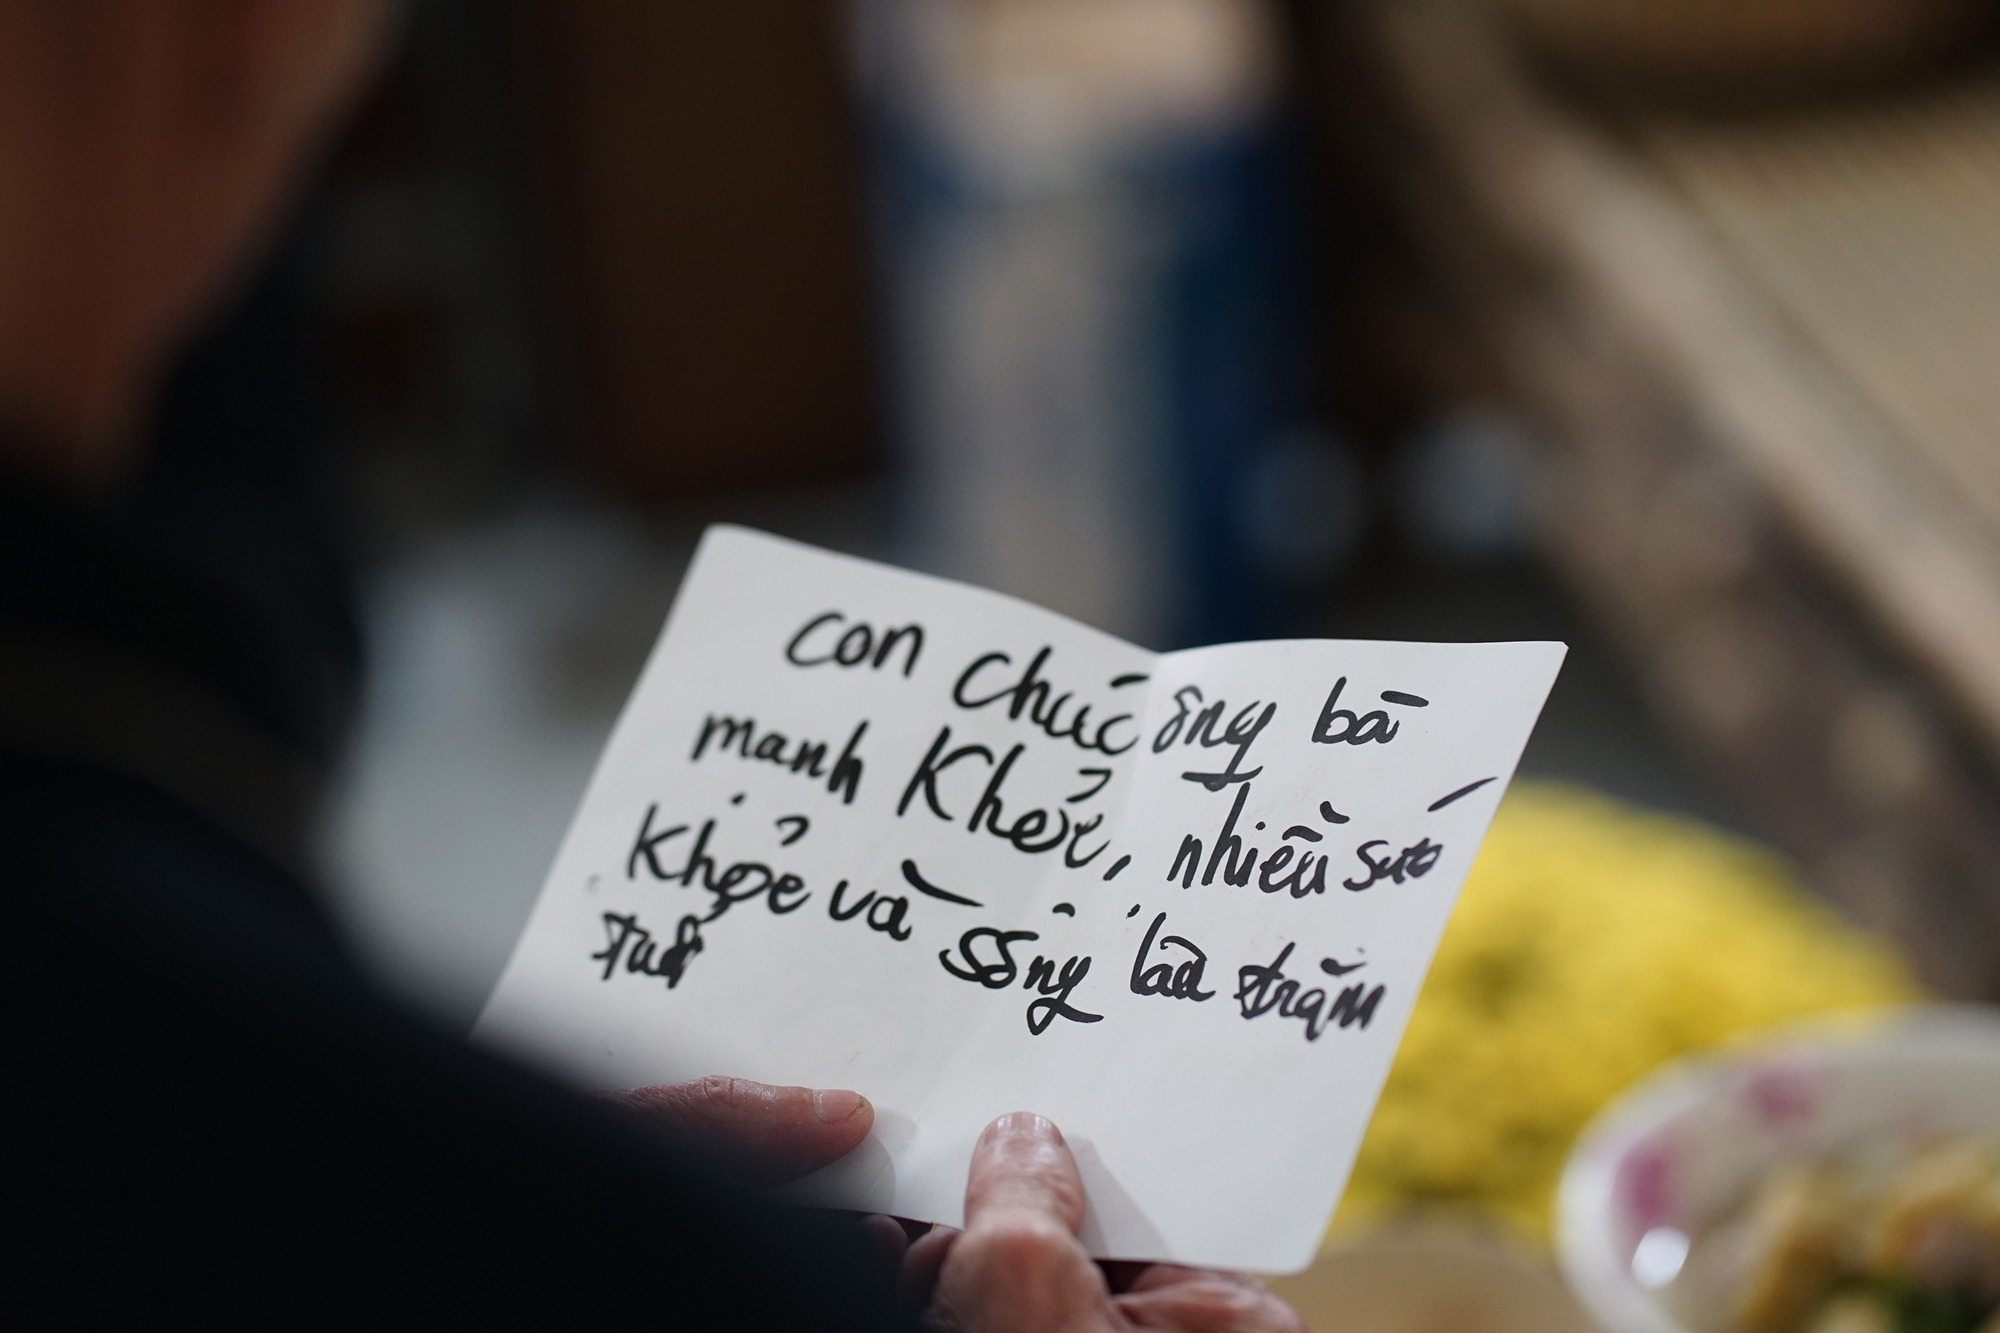 con chúc ông bà
mạnh khỏe, nhiều sức
khỏe và sống lâu trăm
tuổi